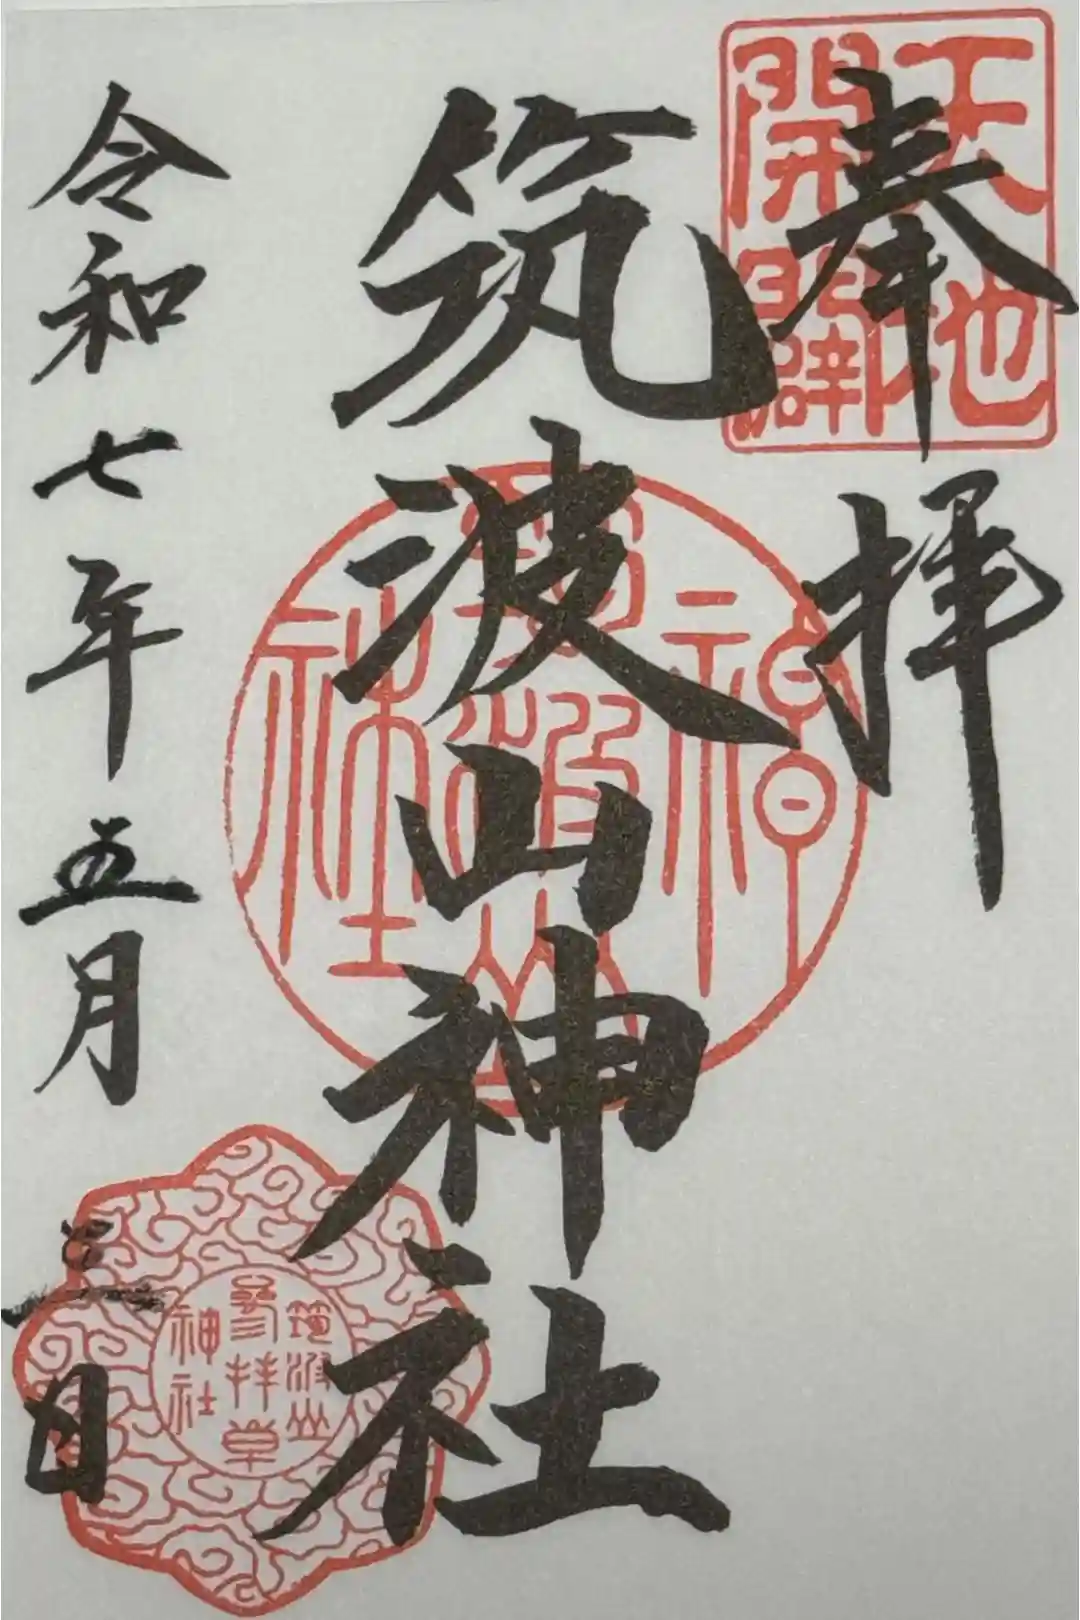 天地
開闢
奉拝
筑波山神社
筑波山
神社
令和七年五月
日
筑波山
參拝章
神社